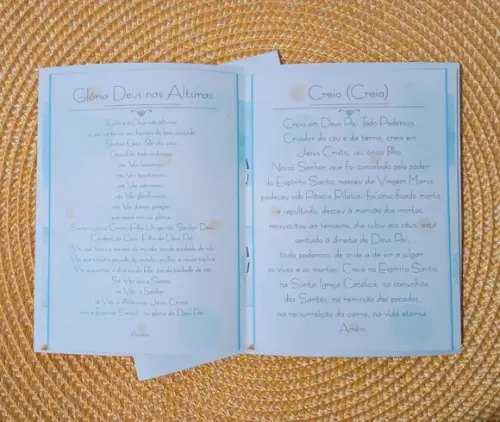 Glória Deus nas Alturas
Glória a Deus nas alturas
e paz na terra aos homens
Senhor Deus, Rei dos céus,
Deus Pai todo-poderoso:
nós Vos louvamos,
nós Vos bendizemos,
nós Vos adoramos,
nós Vos glorificamos,
nós Vos damos graças,
por vossa imensa glória.
Senhor Jesus Cristo, Filho Unigênito, Senhor Deus,
Cordeiro de Deus, Filho de Deus Pai:
Vós que tirais o pecado do mundo, tende piedade de nós;
Vós que tirais o pecado do mundo, acolhei a nossa súplica;
Vós que estais à direita do Pai, tende piedade de nós.
Só Vós sois o Santo;
só Vós, o Senhor;
só Vós, o Altíssimo, Jesus Cristo;
com o Espírito Santo, na glória de Deus Pai.
Amém.
Creio (Creio)
Creio em Deus Pai Todo Poderoso,
Criador do céu e da terra, creio em
Jesus Cristo, seu único filho,
Nosso Senhor, que foi concebido pelo poder
do Espírito Santo, nasceu da Virgem Maria,
padeceu sob Pôncio Pilatos, foi crucificado morto
e sepultado, desceu à mansão dos mortos,
ressuscitou ao terceiro, dia subiu aos céus, está
sentado à direita de Deus Pai,
todo poderoso, de onde a de vir a julgar
os vivos e os mortos. Creio no Espírito Santo,
na Santa Igreja Católica, na comunhão
dos Santos, na remissão dos pecados,
na ressurreição da carne, na vida eterna.
Amém.